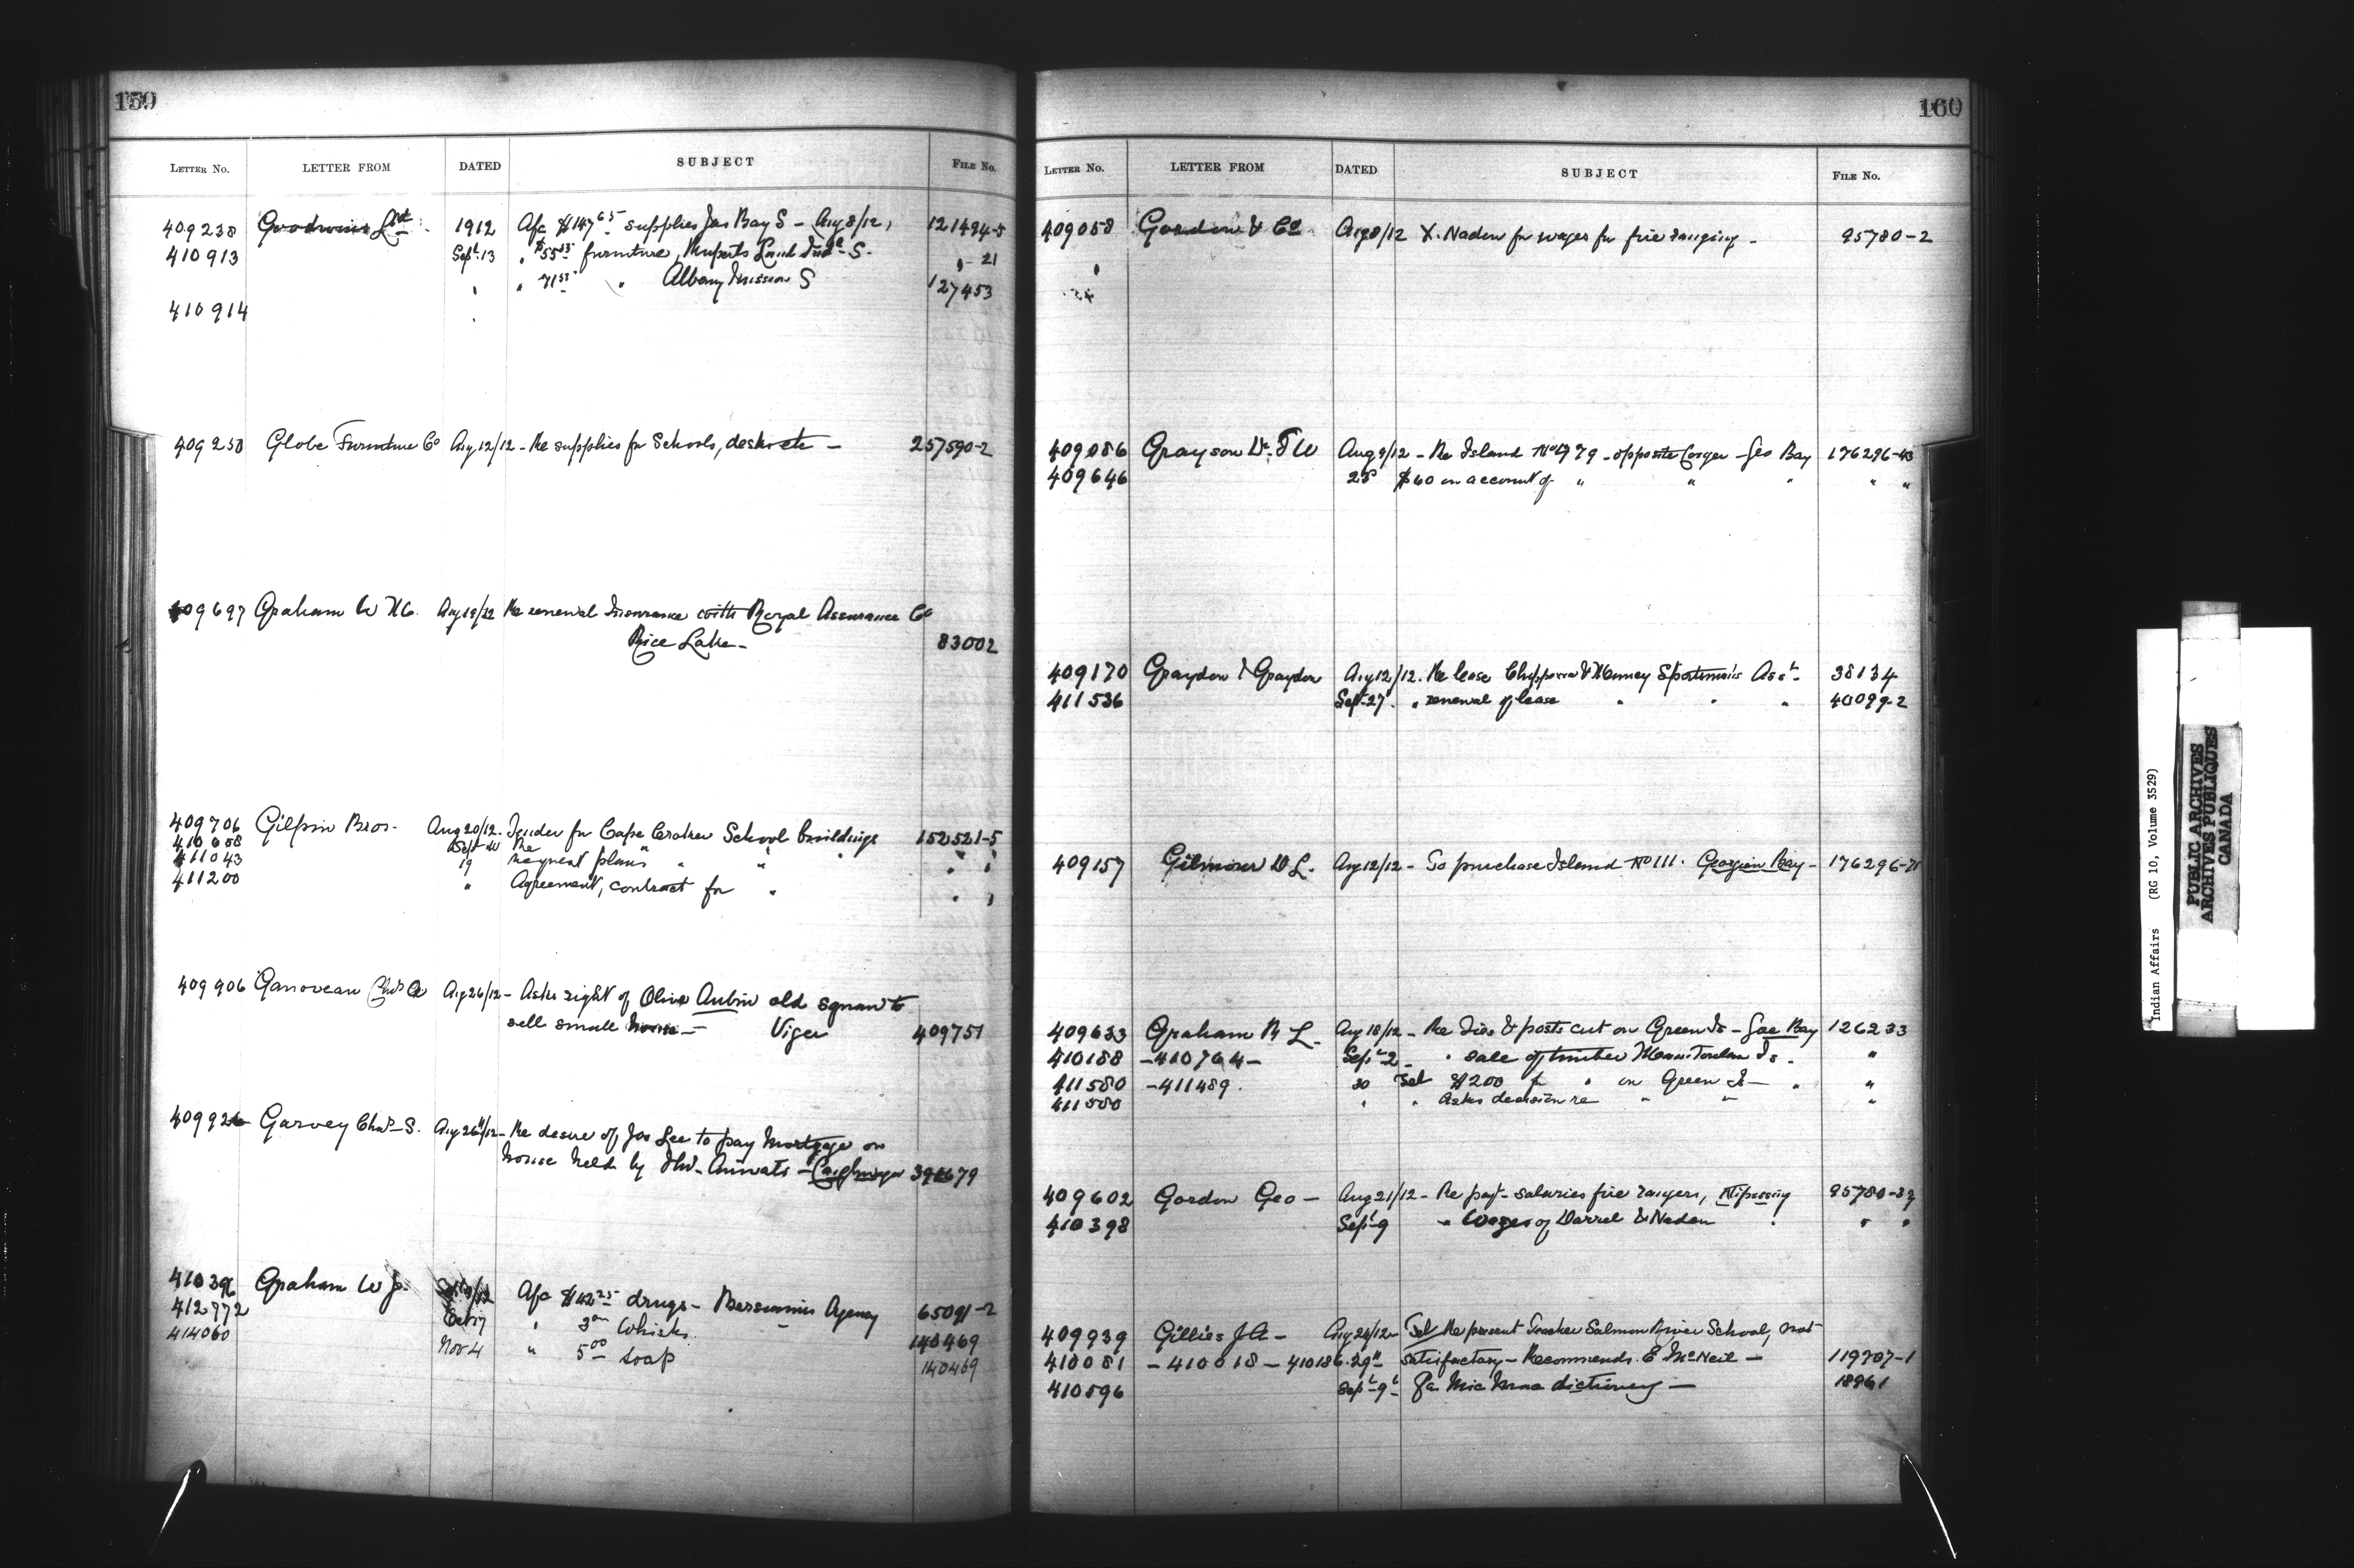 159
LETTER No. LETTER FROM DATED SUBJECT FILE No.
409238 Goodwins Ltd. 1912 A/c $147.65 supplies Jas Bay S - Aug 8/12, 121494-5
410913 Sept 13 " $55 furniture, Ruperts Land Ind. S. " - 21
" " 71 " Albany Mission S 127453
410914
409238 Globe Furniture Co Aug 12/12 - Re supplies for Schools, desks etc - 257590-2
409697 Graham W Aug 19/12 Re renewal Insurance with Royal Assurance Co
Rice Lake - 83002
409706 Gilpin Bros. Aug 20/12. Tender for Cape Croker School buildings 152521-5
410658 Sept Re " " "
411043 19 Request plans " " " " "
411200 " Agreement, contract for " " "
409906 Chas Aug 26/12 - Asks right of Olive Aubin old squaw to
sell small house - Viger 409751
409926 Garvey Chas S. Aug 26/12 - Re desire of Jas Lee to pay Mortgage on
house held by - Caughnawaga
410396 Graham W J. A/c $42.25 drugs - Bersimis Agency 65091-2
412772 Oct 17 " 3 Whisks 140469
414060 Nov 4 " 5.00 soap 140469
160
LETTER No. LETTER FROM DATED SUBJECT FILE No.
409058 Gordon & Co Aug 8/12 X. Naden for wages for fire ranging - 95780-2
409086 Grayson Dr. Aug 9/12 - Re Island No 979 - opposite - Geo Bay 176296-43
409646 25 $60 on account of " " " " "
409170 Graydon & Graydon Aug 12/12. Re lease Sportsmen's Ass. 38134
411536 Sept 27. " renewal of lease " " " 40099-2
409157 Gilmour D L. Aug 12/12 - To purchase Island No 111. Georgian Bay - 176296-71
409633 Graham R L. Aug 18/12 - Re ties & posts cut on Green Is - Geo Bay 126233
410188 - 410764 - Sept 2 - " sale of timber Manitoulin Is. "
411580 - 411489. 30 $200 for " on Green Is - " "
411580 " " Asks decision re " " "
409602 Gordon Geo - Aug 21/12 - Re pay - salaries fire rangers, Nipissing
410398 Sept 9 " Wages of Darrel & Naden " " "
409939 Gillies J A - Aug 24/12 - Re present Teacher Salmon River School, not
410081 - 410018 - 410186. 29 satisfactory - Recommends. E McNeil - 119707-1
410596 Sept 9 Re Mic Mac dictionary - 18961
Indian Affairs (RG 10, Volume 3529)
PUBLIC ARCHIVES
ARCHIVES PUBLIQUES
CANADA